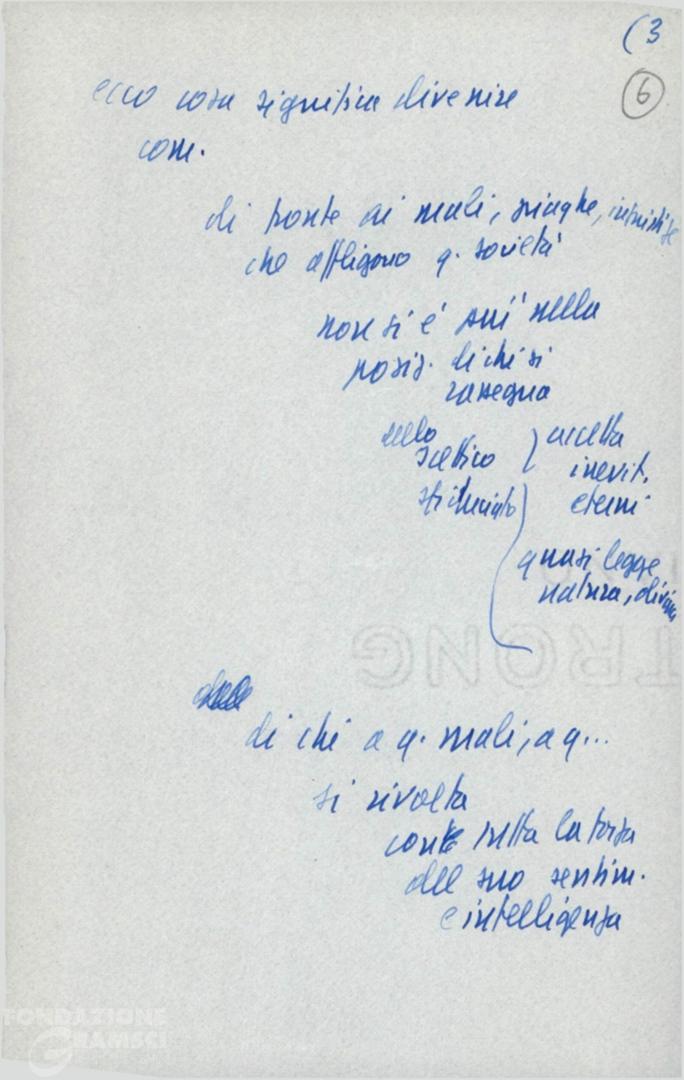 (3
6
ecco cosa significa divenire
com.
di fronte ai mali, piaghe, ingiustizie
che affliggono q. società
non si è più nella
posiz. di chi si
rassegna
dello
scettico
sfiduciato
accetta
inevit.
eterni
quasi legge
natura, divina
TRONG
di chi a q. mali, a q...
si rivolta
con tutta la forza
del suo sentim.
e intelligenza
FONDAZIONE
GRAMSCI